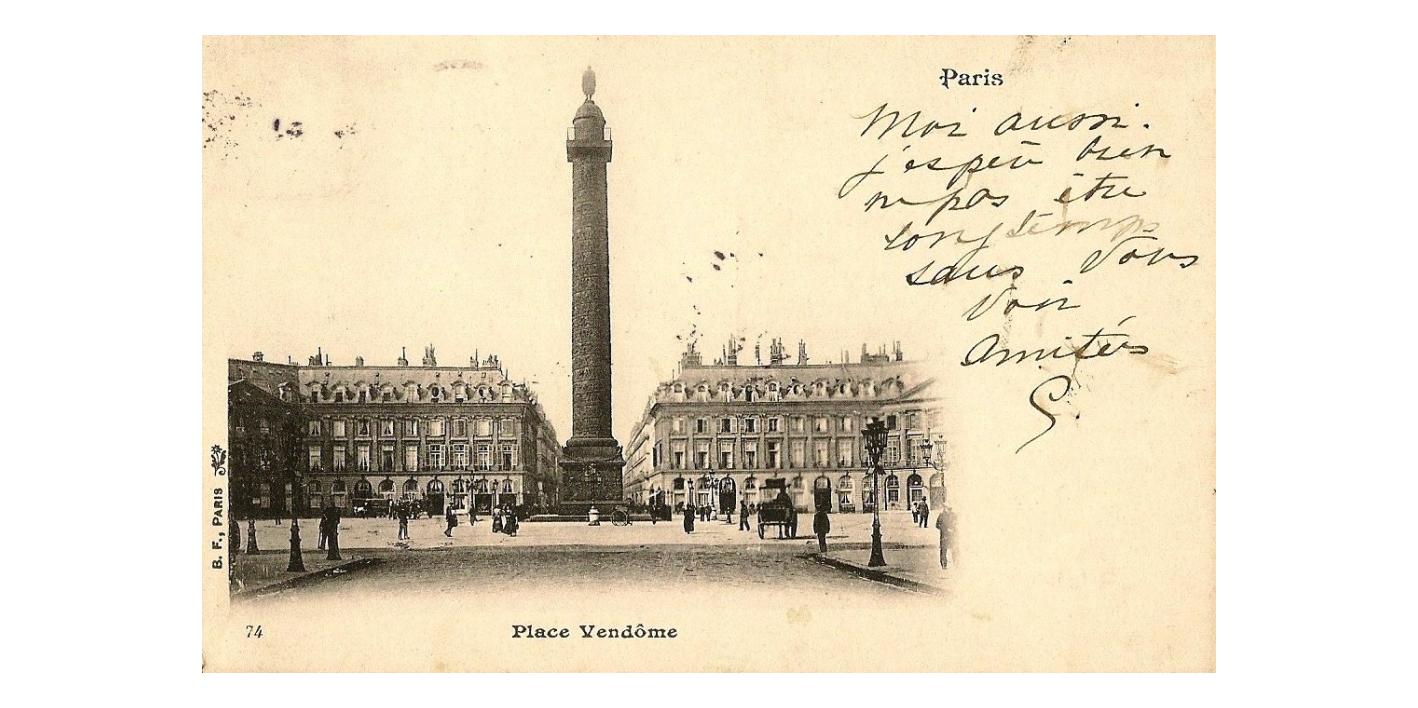 Paris
Moi aussi.
j'espère bien
ne pas être
longtemps
sans vous
voir
Amitiés
G
B. F., PARIS
74
Place Vendôme